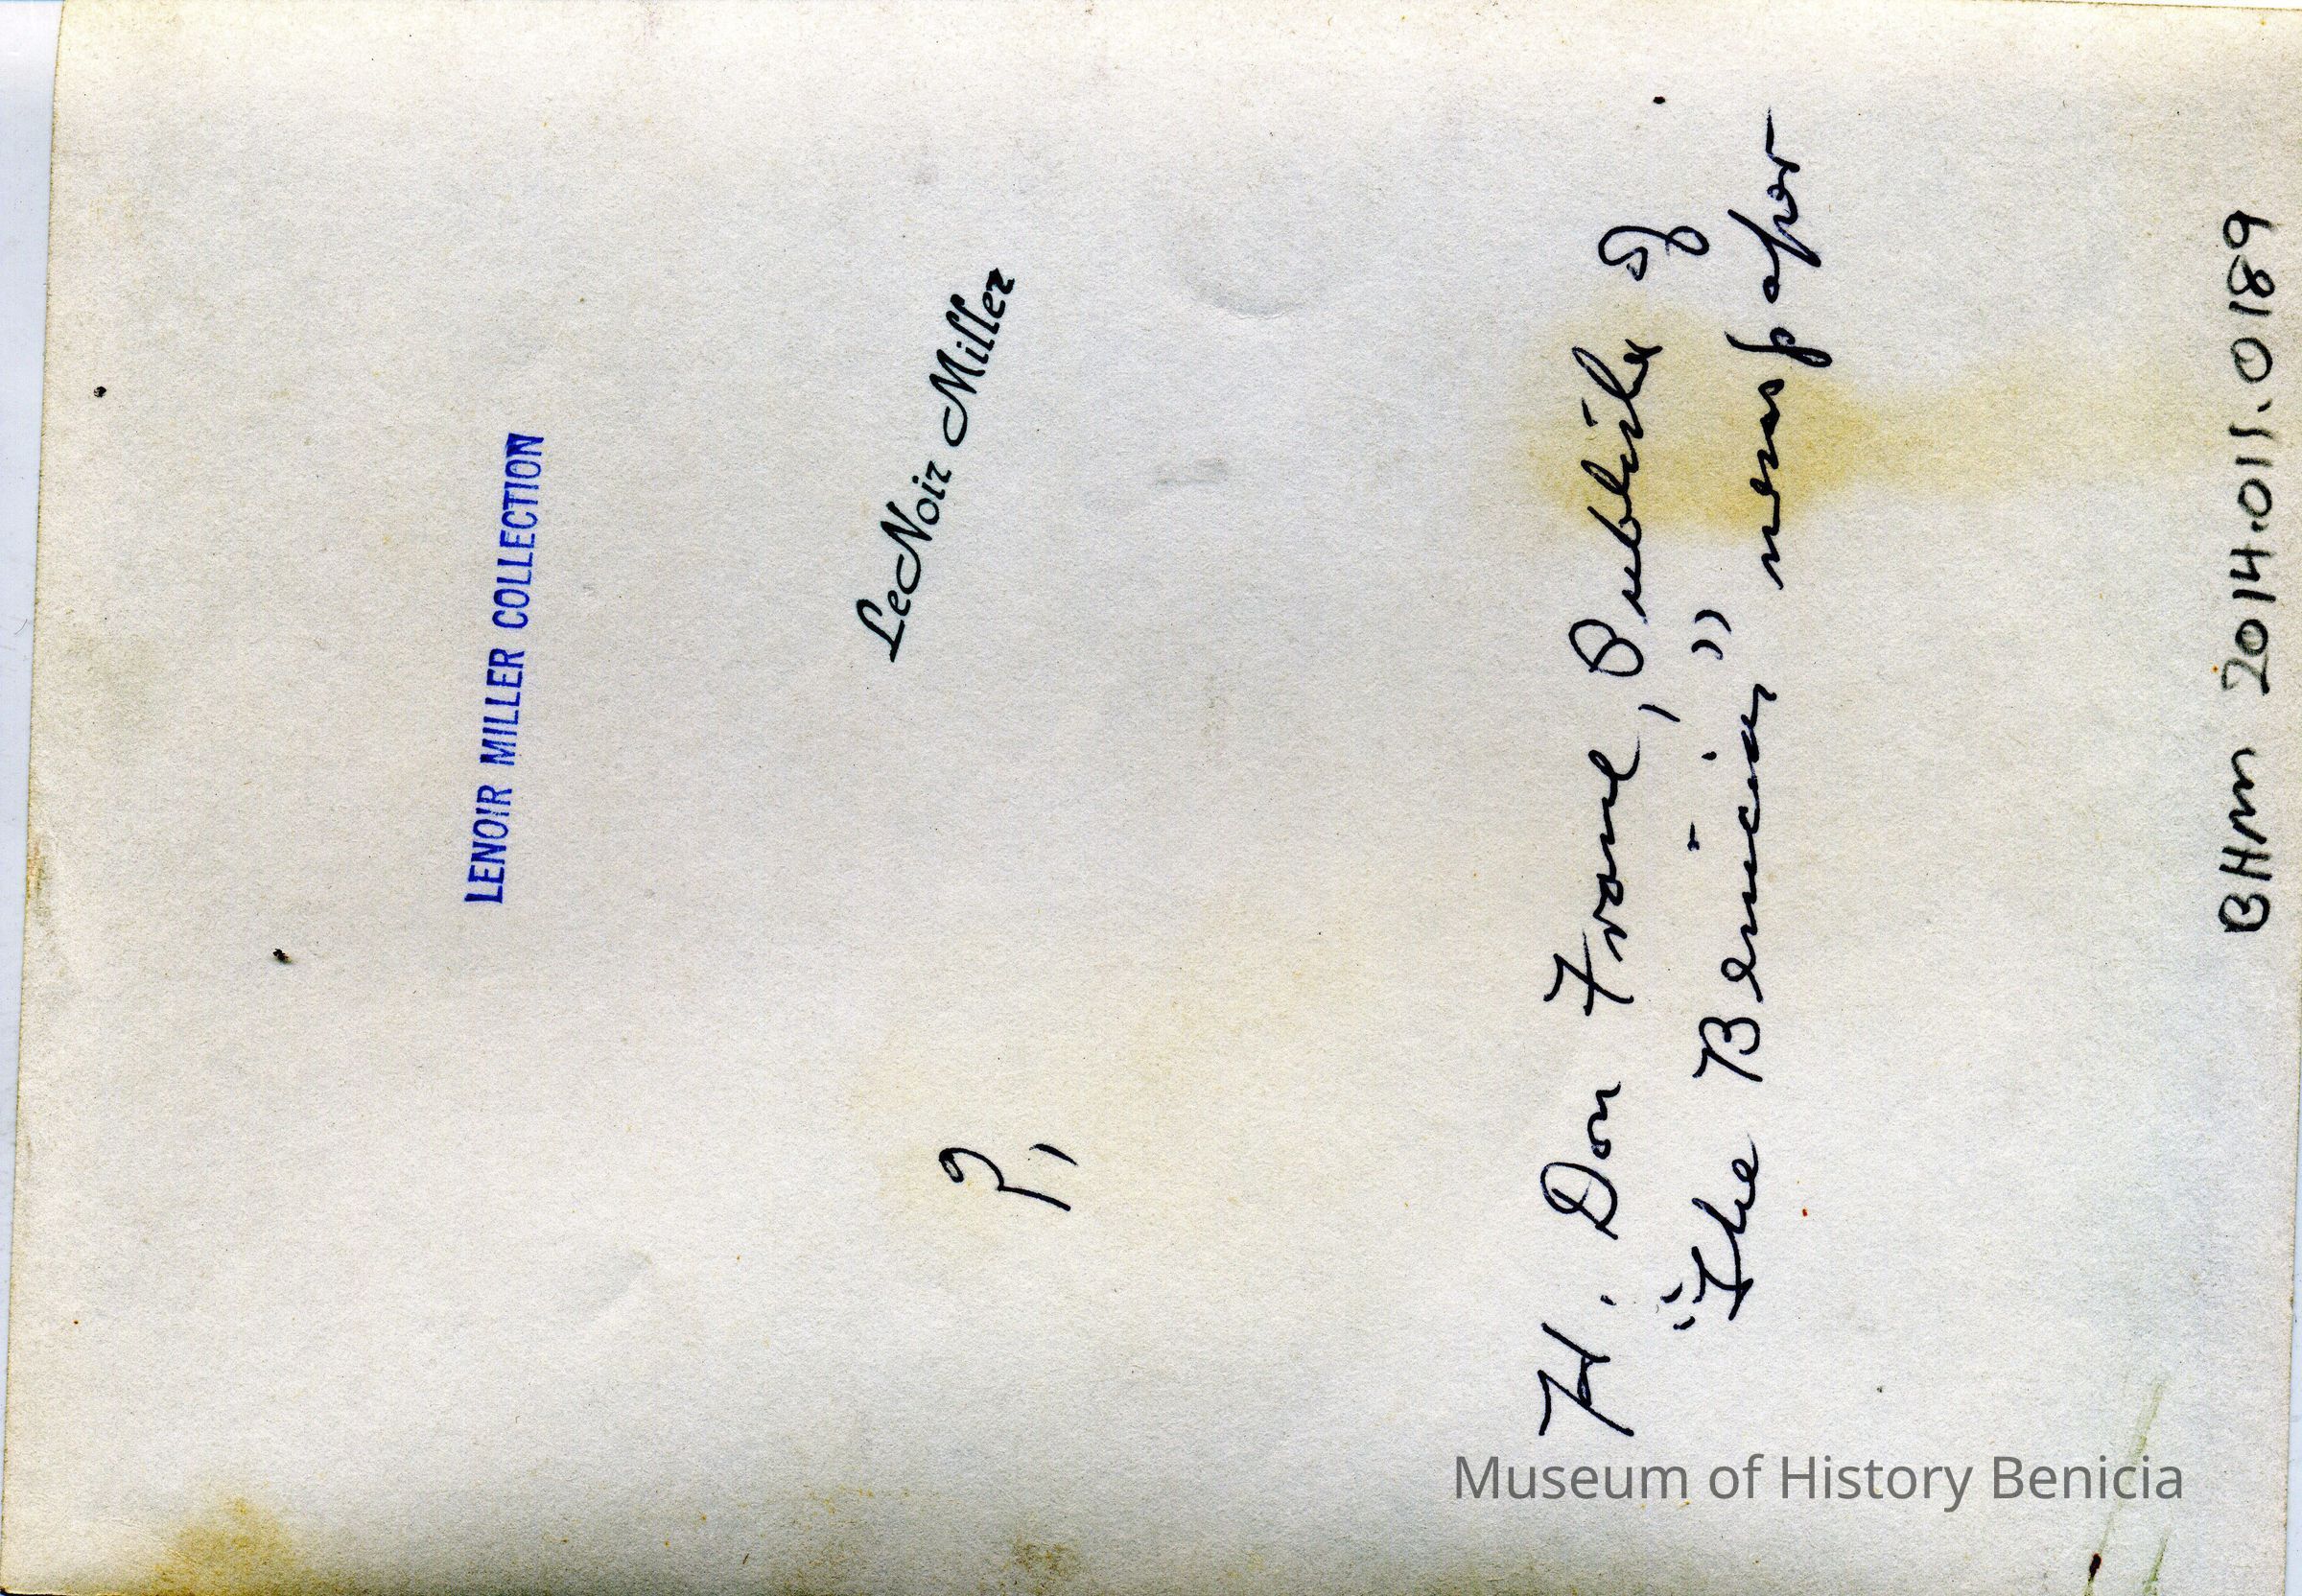 LENOIR MILLER COLLECTION
LeNoir Miller
P,
H. Don Frame, Publisher of
"The Benicia," newspaper
BHM 2014.011.0189
Museum of History Benicia